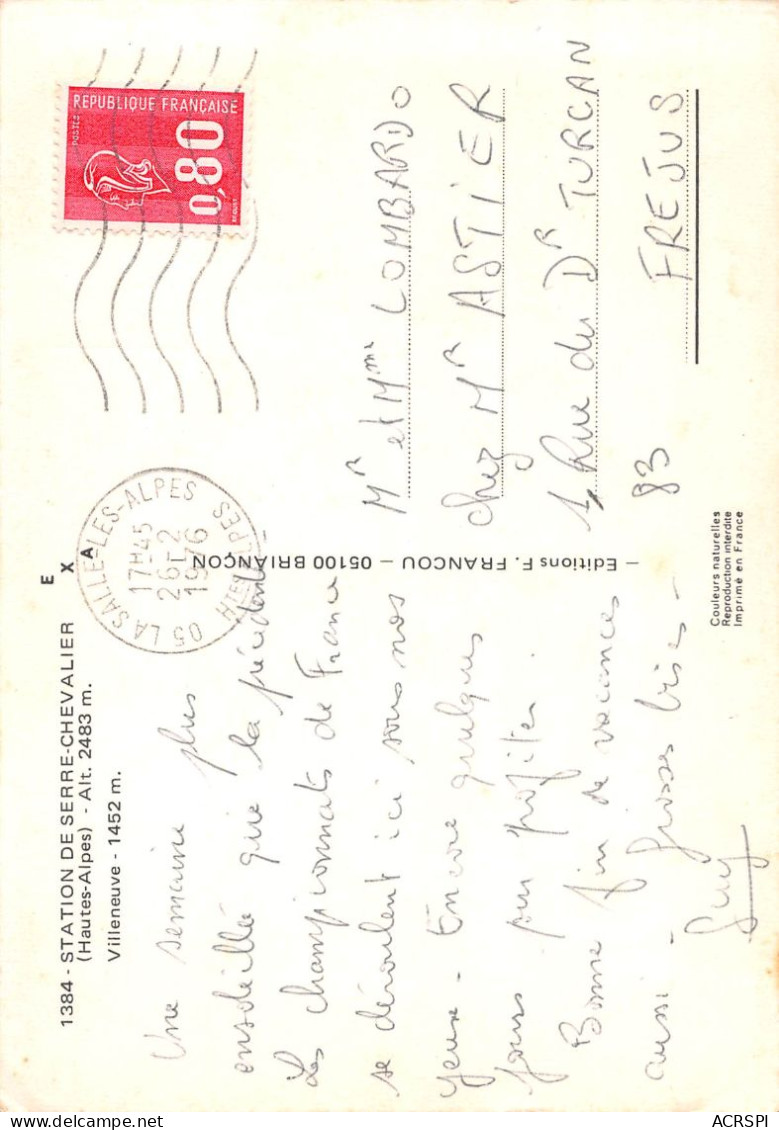 1384 - STATION DE SERRE-CHEVALIER
(Hautes-Alpes) - Alt. 2483 m.
Villeneuve - 1452 m.
E
X
A
Une semaine plus
ensoleillée que la précédente
Les championnats de France
se déroulent ici sous nos
yeux - Encore quelques
jours pour profiter.
Bonne fin de vacances
aussi - Grosses bises -
Guy
REPUBLIQUE FRANÇAISE
POSTES
0,80
05 LA SALLE-LES-ALPES
17H45
26-2
1976
HTES ALPES
— Editions F. FRANCOU — 05100 BRIANÇON
Mr et Mme LOMBARDO
chez Mr ASTIER
1, Rue du Dr TURCAN
83 FREJUS
Couleurs naturelles
Reproduction interdite
Imprimé en France
ACRSPI